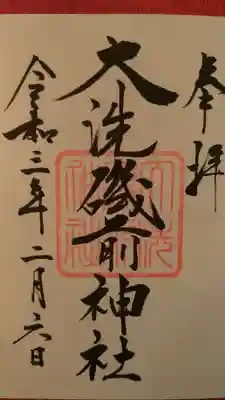 奉拝
大洗磯前神社
令和三年二月六日